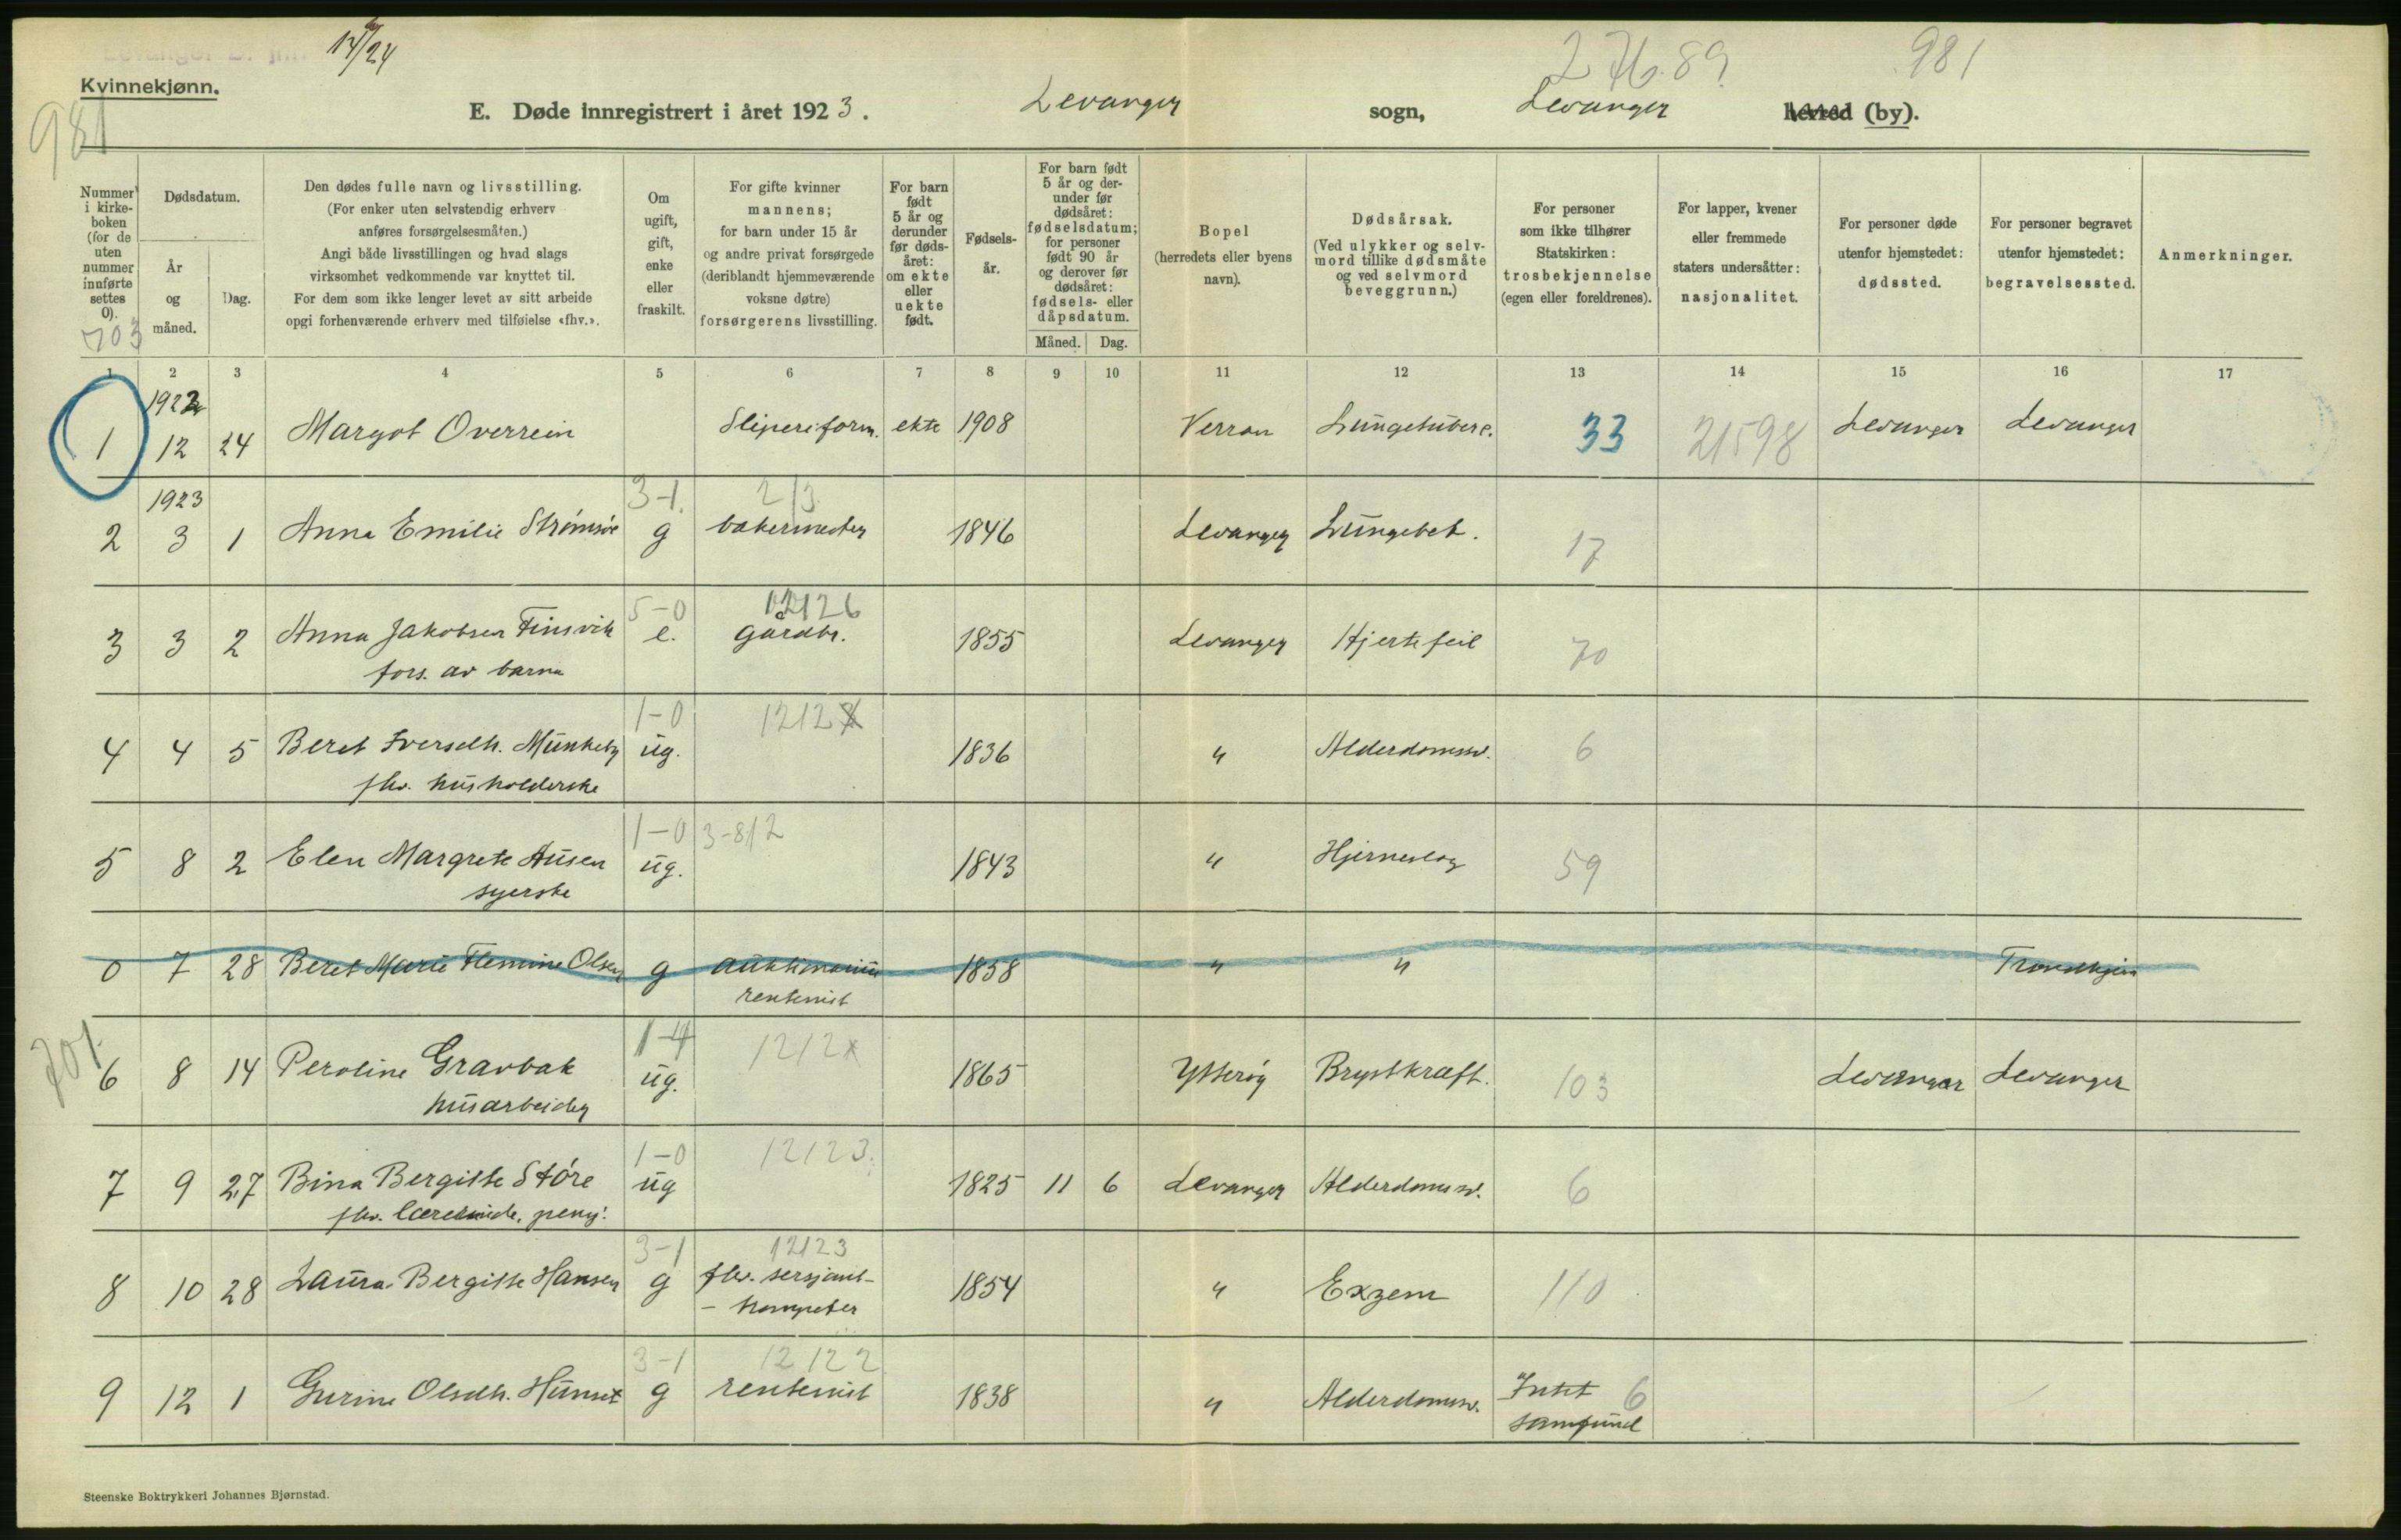 14/6 24
2 76.89
981
Kvinnekjønn.
E. Døde innregistrert i året 1923. Levanger sogn, Levanger herred (by).
981
Nummer i kirke-boken (for de uten nummer innførte settes 0).
Dødsdatum.
År og måned.
Dag.
Den dødes fulle navn og livsstilling.
(For enker uten selvstendig erhverv anføres forsørgelsesmåten.)
Angi både livsstillingen og hvad slags virksomhet vedkommende var knyttet til.
For dem som ikke lenger levet av sitt arbeide opgi forhenværende erhverv med tilføielse «fhv.».
Om ugift, gift, enke eller fraskilt.
For gifte kvinner mannens; for barn under 15 år og andre privat forsørgede (deriblandt hjemmeværende voksne døtre) forsørgerens livsstilling.
For barn født 5 år og derunder før døds-året: om ekte eller uekte født.
Fødsels-år.
For barn født 5 år og der-under før dødsåret: fødselsdatum; for personer født 90 år og derover før dødsåret: fødsels- eller dåpsdatum.
Måned. Dag.
Bopel (herredets eller byens navn).
Dødsårsak. (Ved ulykker og selv-mord tillike dødsmåte og ved selvmord beveggrunn.)
For personer som ikke tilhører Statskirken: trosbekjennelse (egen eller foreldrenes).
For lapper, kvener eller fremmede staters undersåtter: nasjonalitet.
For personer døde utenfor hjemstedet: dødssted.
For personer begravet utenfor hjemstedet: begravelsessted.
Anmerkninger.
703
1 2 3 4 5 6 7 8 9 10 11 12 13 14 15 16 17
1922
1 12 24 Margot Overrein Sliperiform. ekte 1908 Verran Lungetuberc. 33 21598 Levanger Levanger
1923 3-1. 2/3
2 3 1 Anna Emilie Strømsøe g bakermester 1846 Levanger Lungebet. 17
5-0 12126
3 3 2 Anna Jakobsen Finsvik e. Gårdbr. 1855 Levanger Hjertefeil 70
fors. av barna
1-0 1212
4 4 5 Beret Iversdtr. Munkeby ug. 1836 " Alderdomssv. 6
fhv. husholderske
1-0 3-8/2
5 8 2 Elen Margrete Ausen ug. 1843 " Hjerneslag 59
syerske
0 7 28 Beret Marie Flemine Olsen g auktionarius 1858 " " Trondhjem
rentenist
701. 1-4 1212x
6 8 14 Peroline Gravbak ug. 1865 Ytterøy Brystkræft. 103 Levanger Levanger
husarbeider
1-0 12123
7 9 27 Bina Bergitte Støre ug 1825 11 6 Levanger Alderdomssv. 6
fhv. lærerinde, pensj.
3-1 12123
8 10 28 Laura Bergitte Hansen g fhv. sersjant- 1854 " Exzem 110
- trompeter
3-1 12122
9 12 1 Gurine Olsdtr. Hunset g rentenist 1838 " Alderdomssv. Intet 6
samfund
Steenske Boktrykkeri Johannes Bjørnstad.